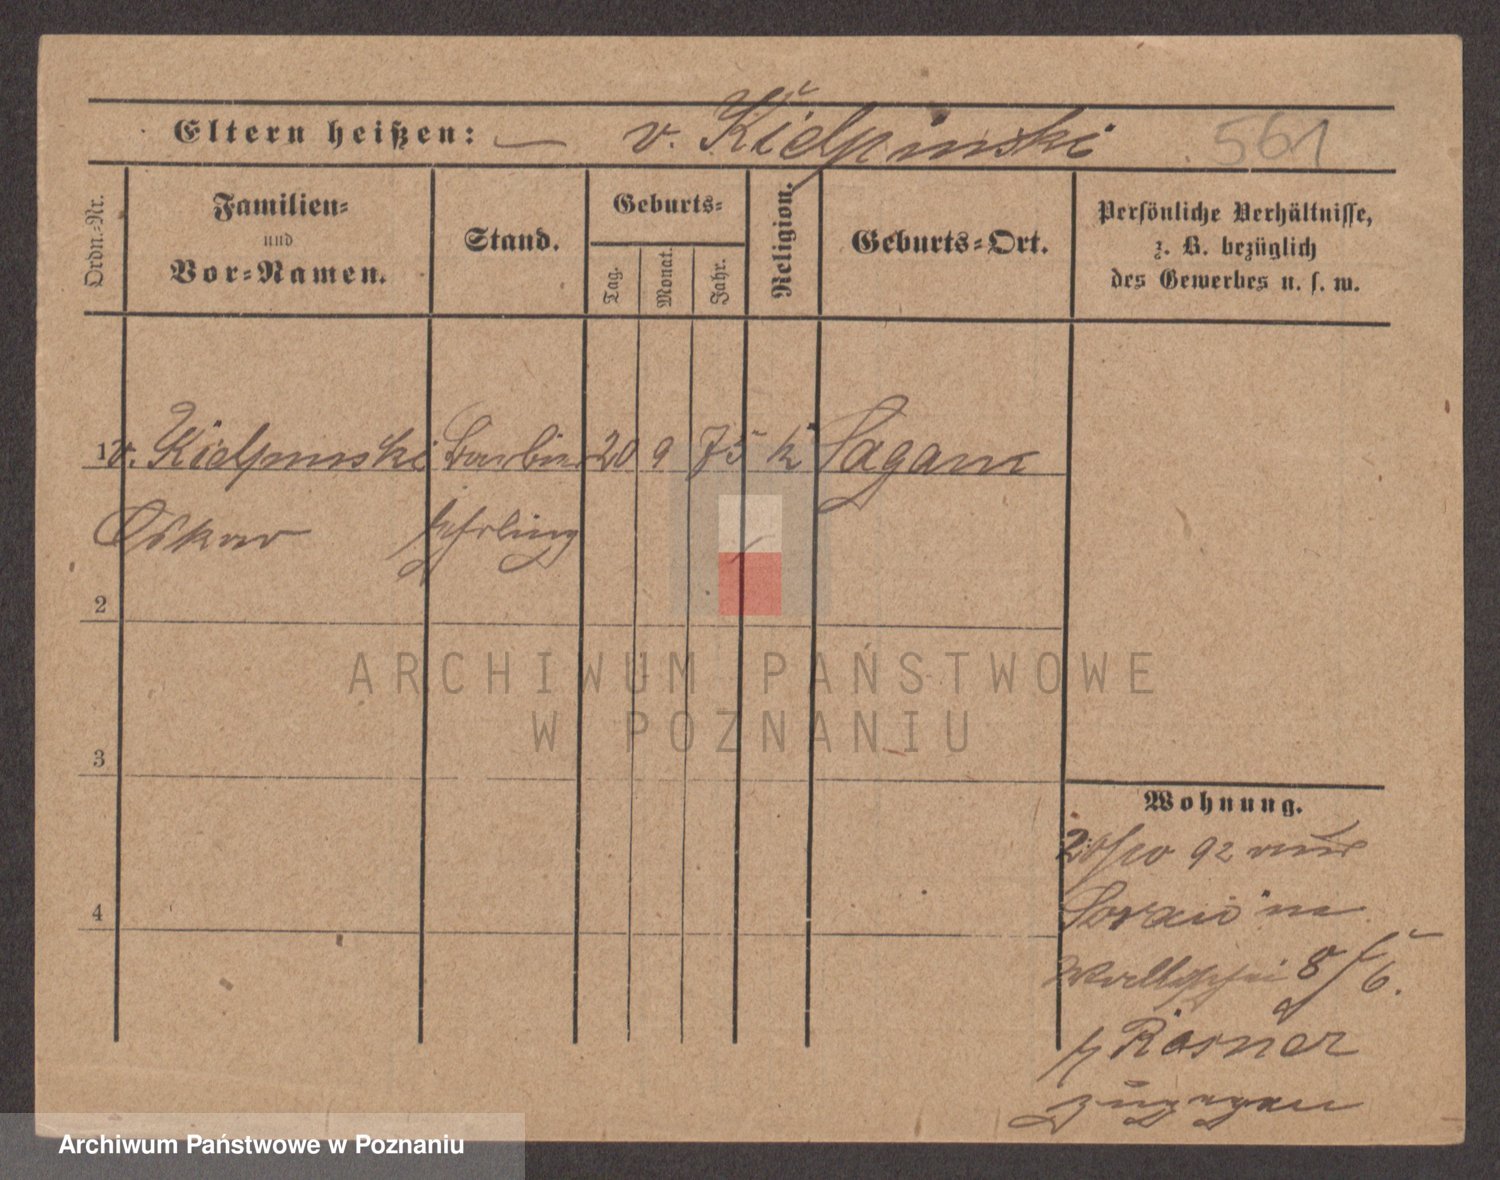 Eltern heißen: — v. Kielpinski 561
Ordn.-Nr.
Familien-
und
Vor-Namen.
Stand.
Geburts-
Tag.
Monat.
Jahr.
Religion.
Geburts-Ort.
Persönliche Verhältnisse,
z. B. bezüglich
des Gewerbes u. s. w.
1 v. Kielpinski Barbier 20 9 75 k Sagan
Oskar lehrling
2
3
4
Wohnung.
20/10 92 aus
Sorau in
Wallischei 5/6.
b/ Rösner
zugezogen
ARCHIWUM PAŃSTWOWE
W POZNANIU
Archiwum Państwowe w Poznaniu